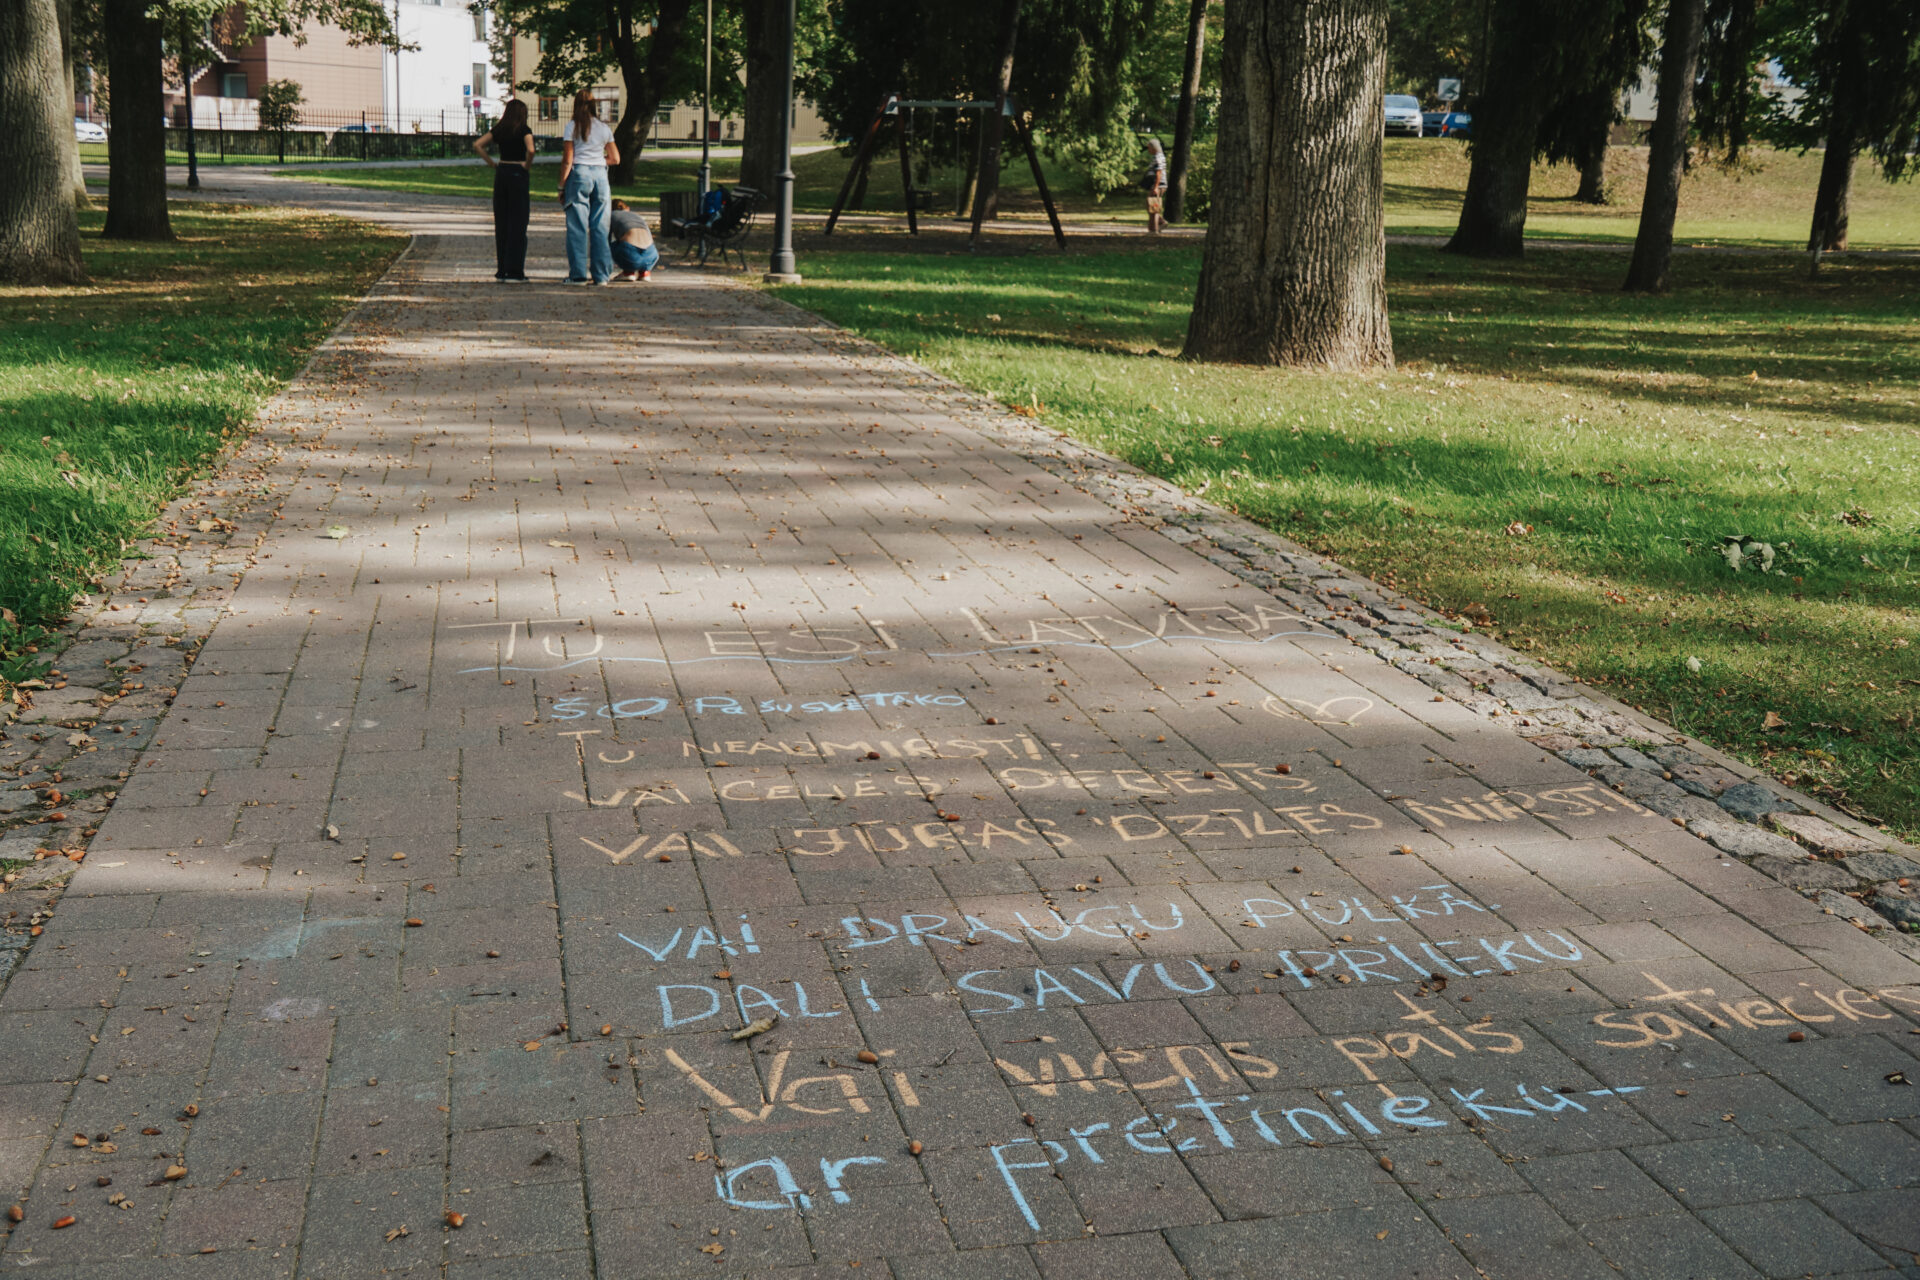 TU ESi LATVIJA
ŠO PaŠU SVĒTĀKO
TU NEAIZMIRSTI:
VAI CELIES DEBESĪS,
VAI JŪRAS DZĪLĒS NIRSTI,
VAi DRAUGU PULKĀ.
DALI SAVU PRiEKU
Vai viens pats satiecies
ar pretinieku-